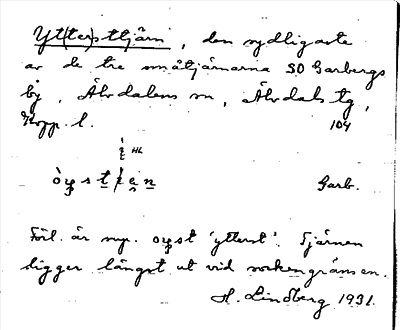 Yt(ter)sttjärn, den sydligaste
av de tre småtjärnarna SO Garbergs
by, Älvdalens sn, Älvdals tg,
Kopp. l. 104
HL
Garb.
Förl. är myr. oyst 'ytterst'. Tjärnen
ligger längst ut vid sockengränsen.
H. Lindberg 1931.